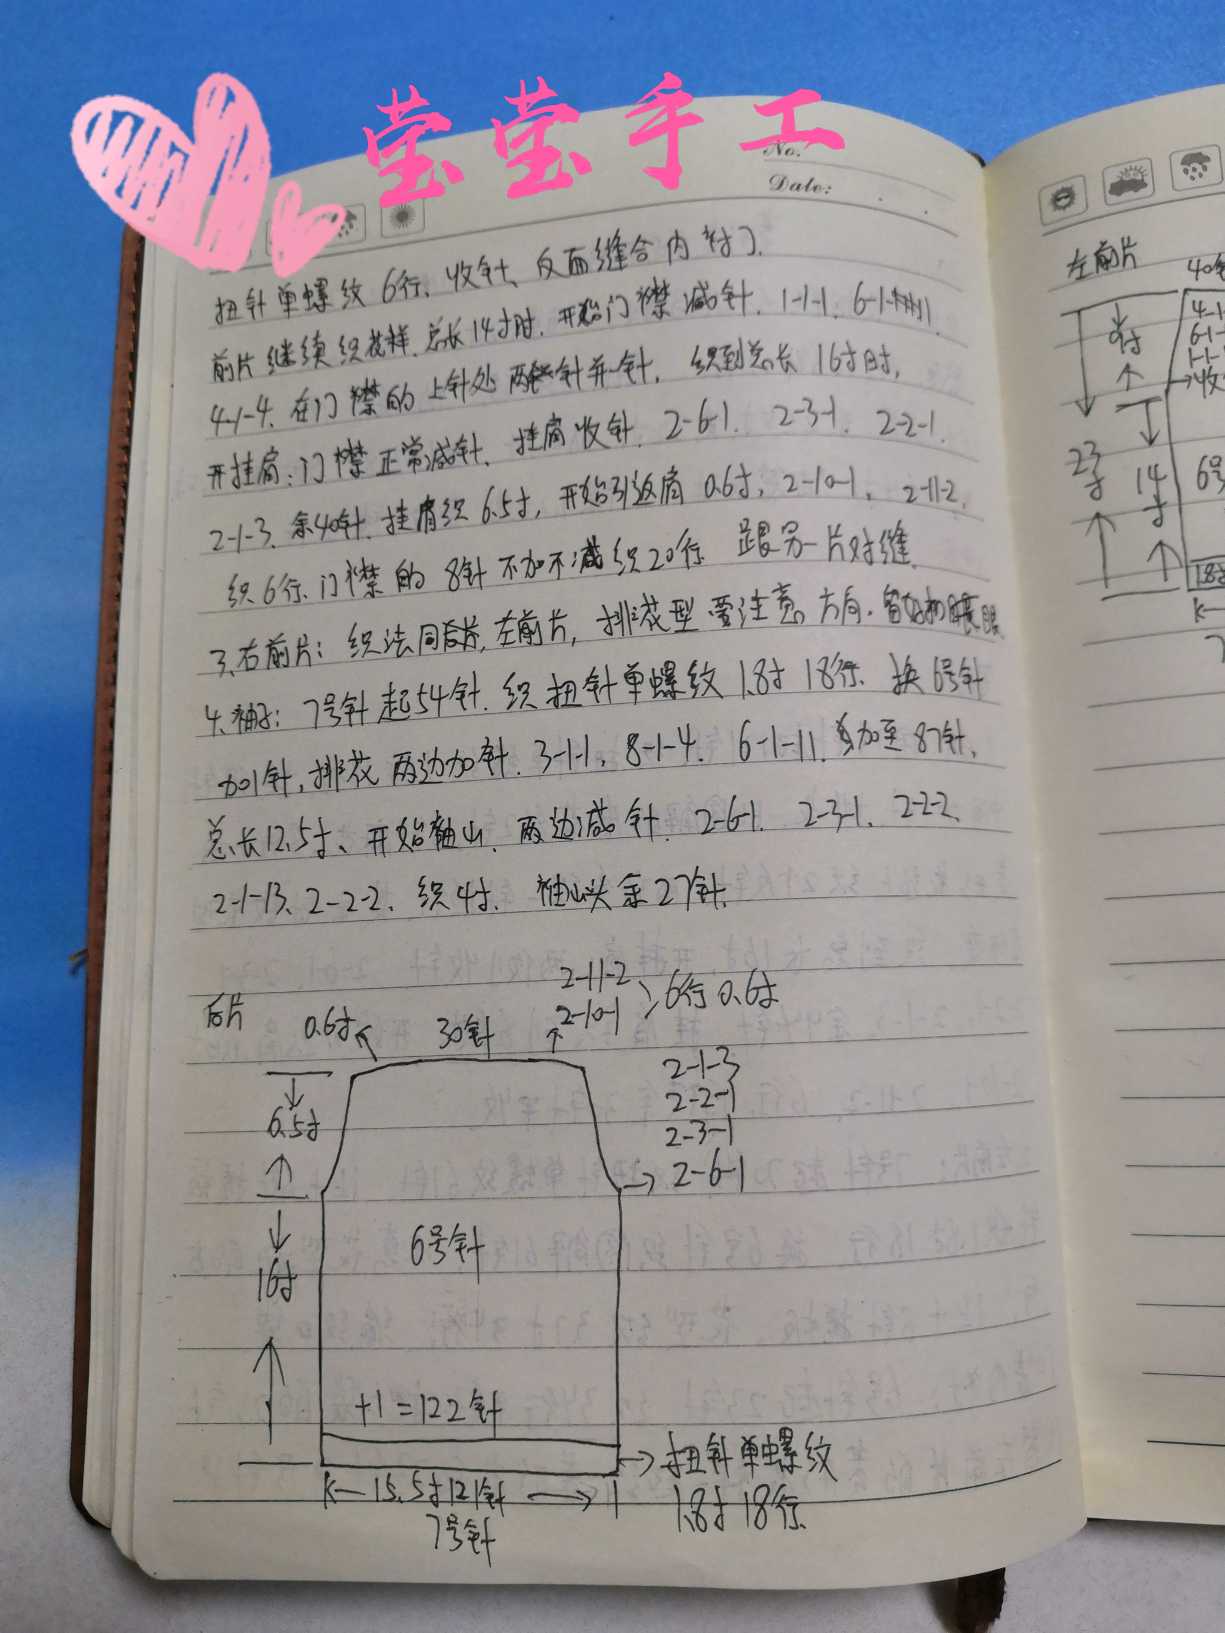 莹莹手工
No.
Date:
扭针单螺纹6行、收针、反面缝合内衬了.
前片继续织花样.总长14寸时.开始门襟减针.1-1-1. 6-1-
4-1-4.在门襟的上针处两针并一针.织到总长16寸时,
开挂肩:门襟正常减针、挂肩收针.2-6-1. 2-3-1. 2-2-1.
2-1-3.余40针.挂肩织6.5寸,开始引返肩0.6寸,2-10-1, 2-11-2,
织6行.门襟的8针不加不减织20行 跟另一片对缝.
3.右前片:织法同左前片,排花型要注意方向.留好扣眼
4.袖子:7号针起54针.织扭针单螺纹1.8寸18行.换6号针
加1针,排花 两边加针.3-1-1, 8-1-4. 6-1-11.加至87针.
总长12.5寸、开始袖山.两边减针.2-6-1. 2-3-1. 2-2-2.
2-1-13、2-2-2、织4寸.袖山头余27针.
后片
0.6寸
30针
2-11-2
2-10-1
6行0.6寸
6.5寸
2-1-3
2-2-1
2-3-1
2-6-1
16寸
6号针
+1=122针
15.5寸121针
7号针
扭针单螺纹
1.8寸18行.
左前片
40针
4-1
6-1
1-1
收
9寸
23寸
14寸
6号
1.8寸
7